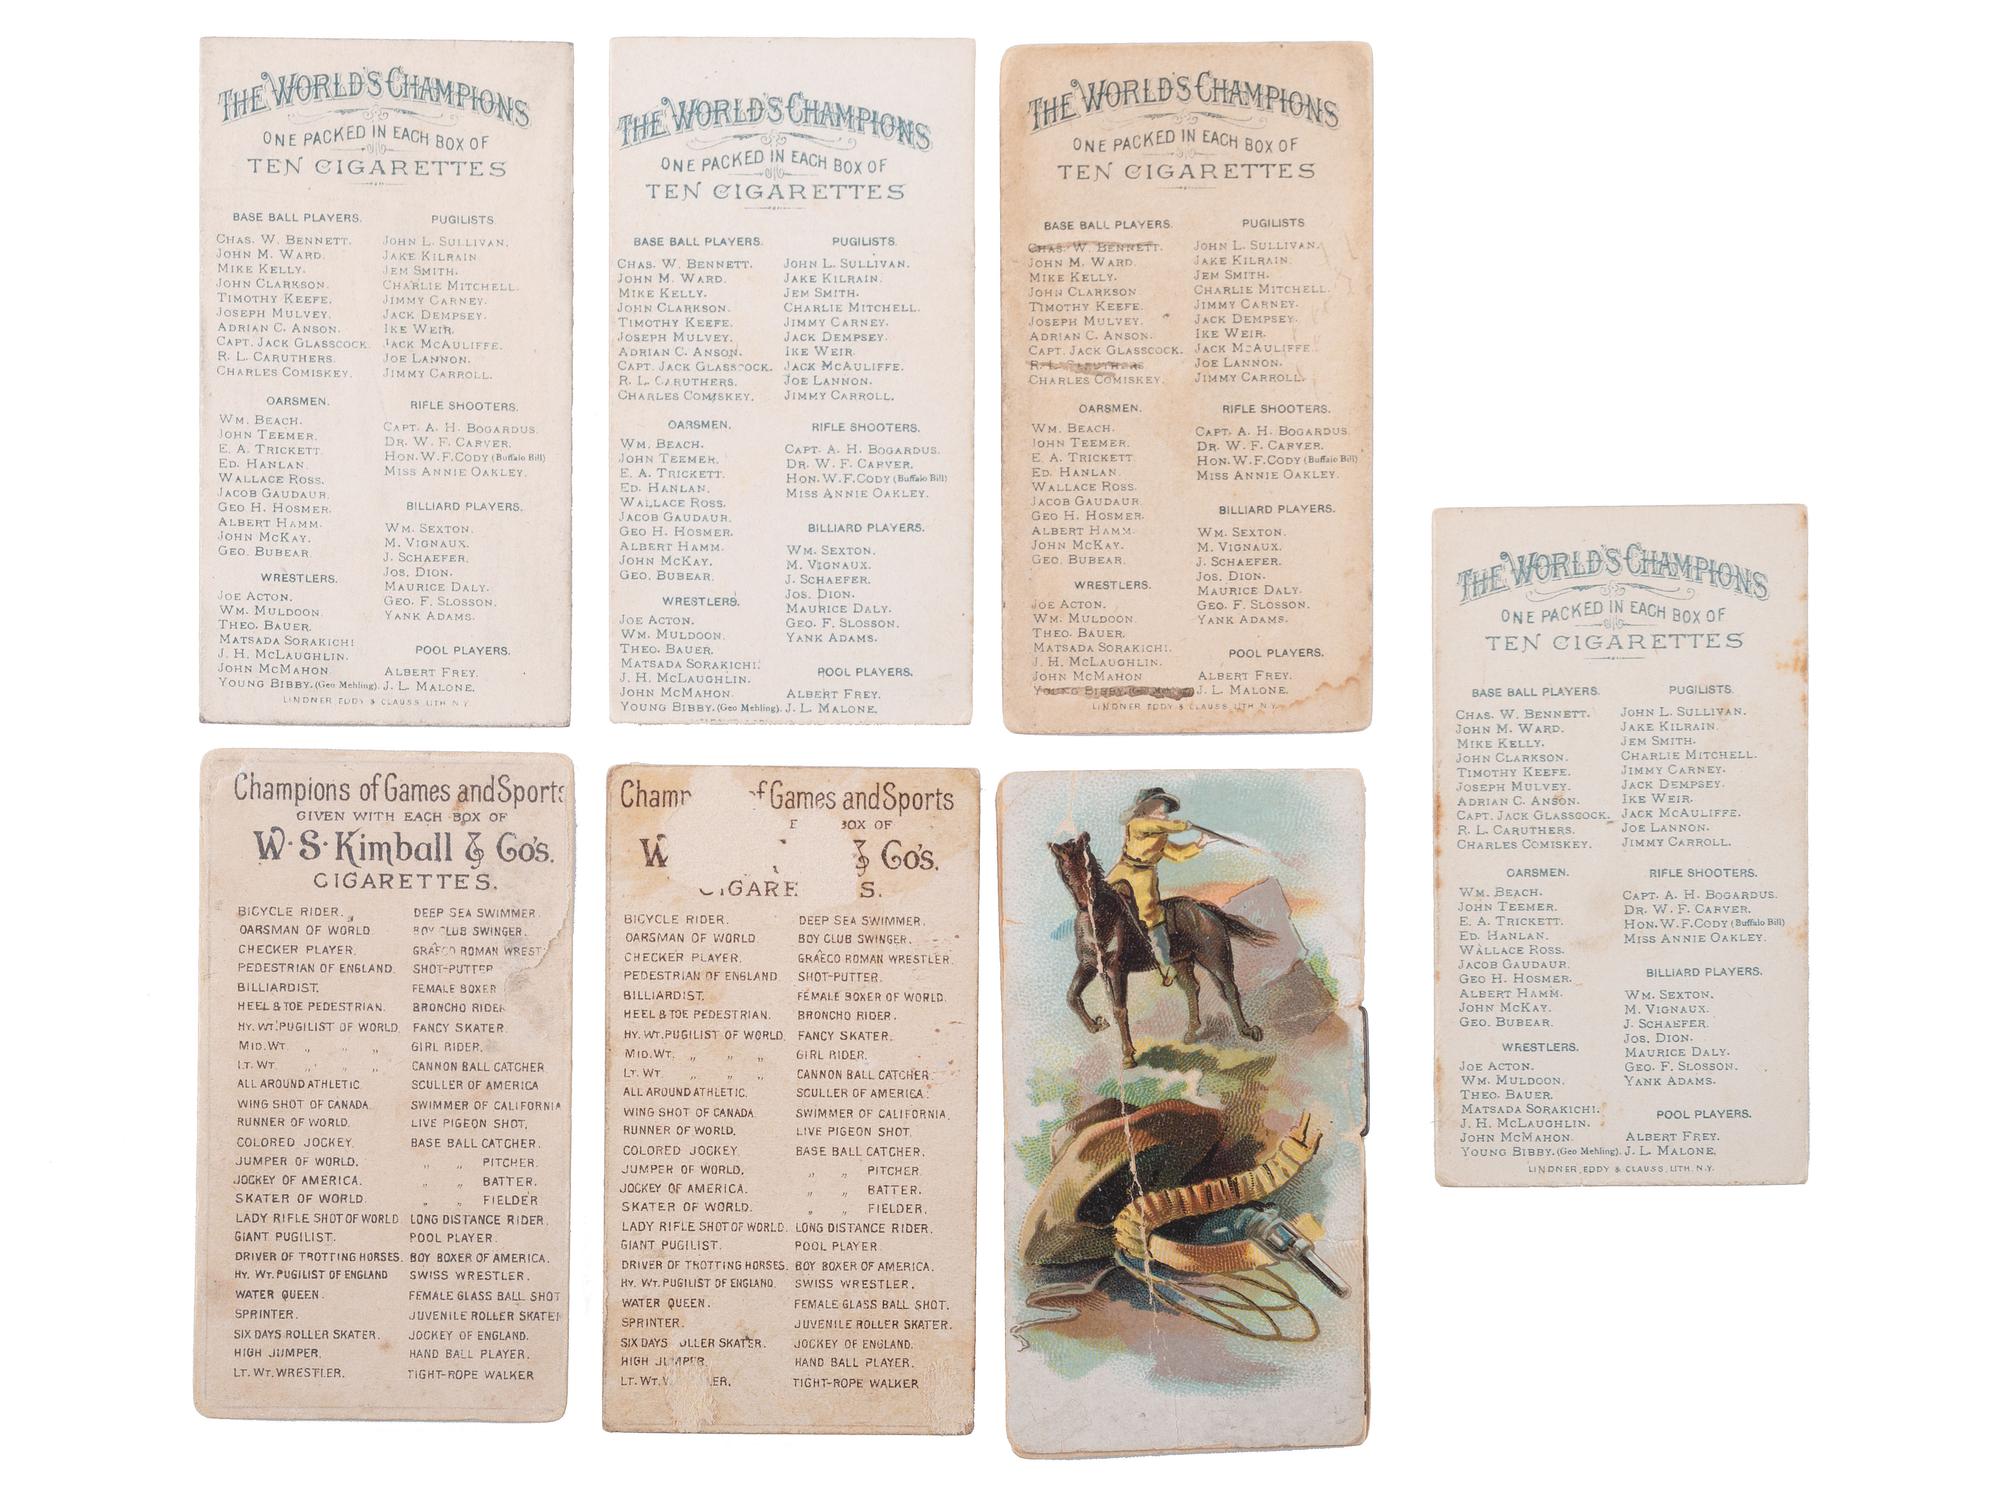 THE WORLD'S CHAMPIONS
ONE PACKED IN EACH BOX OF
TEN CIGARETTES
BASE BALL PLAYERS.
CHAS. W. BENNETT.
JOHN M. WARD.
MIKE KELLY.
JOHN CLARKSON.
TIMOTHY KEEFE.
JOSEPH MULVEY.
ADRIAN C. ANSON.
CAPT. JACK GLASSCOCK.
R. L. CARUTHERS.
CHARLES COMISKEY.
OARSMEN.
WM. BEACH.
JOHN TEEMER.
E. A. TRICKETT.
ED. HANLAN.
WALLACE ROSS.
JACOB GAUDAUR.
GEO H. HOSMER.
ALBERT HAMM.
JOHN MCKAY.
GEO. BUBEAR.
WRESTLERS.
JOE ACTON.
WM. MULDOON.
THEO. BAUER.
MATSADA SORAKICHI
J. H. MCLAUGHLIN.
JOHN MCMAHON
YOUNG BIBBY. (Geo Mehling).
PUGILISTS
JOHN L. SULLIVAN.
JAKE KILRAIN
JEM SMITH.
CHARLIE MITCHELL.
JIMMY CARNEY.
JACK DEMPSEY.
IKE WEIR.
JACK MCAULIFFE.
JOE LANNON.
JIMMY CARROLL.
RIFLE SHOOTERS.
CAPT. A. H. BOGARDUS.
DR. W. F. CARVER.
HON. W. F. CODY (Buffalo Bill)
MISS ANNIE OAKLEY.
BILLIARD PLAYERS.
WM. SEXTON.
M. VIGNAUX.
J. SCHAEFER.
JOS. DION.
MAURICE DALY.
GEO. F. SLOSSON.
YANK ADAMS.
POOL PLAYERS.
ALBERT FREY.
J. L. MALONE.
LINDNER, EDDY & CLAUSS, LITH. N.Y.
THE WORLD'S CHAMPIONS
ONE PACKED IN EACH BOX OF
TEN CIGARETTES
BASE BALL PLAYERS.
CHAS. W. BENNETT.
JOHN M. WARD.
MIKE KELLY.
JOHN CLARKSON.
TIMOTHY KEEFE.
JOSEPH MULVEY.
ADRIAN C. ANSON.
CAPT. JACK GLASSCOCK.
R. L. CARUTHERS.
CHARLES COMISKEY.
OARSMEN.
WM. BEACH.
JOHN TEEMER.
E. A. TRICKETT.
ED. HANLAN.
WALLACE ROSS.
JACOB GAUDAUR.
GEO H. HOSMER.
ALBERT HAMM.
JOHN MCKAY.
GEO. BUBEAR.
WRESTLERS.
JOE ACTON.
WM. MULDOON.
THEO. BAUER.
MATSADA SORAKICHI.
J. H. MCLAUGHLIN.
JOHN MCMAHON.
YOUNG BIBBY. (Geo Mehling).
PUGILISTS.
JOHN L. SULLIVAN.
JAKE KILRAIN.
JEM SMITH.
CHARLIE MITCHELL.
JIMMY CARNEY.
JACK DEMPSEY.
IKE WEIR.
JACK MCAULIFFE.
JOE LANNON.
JIMMY CARROLL.
RIFLE SHOOTERS.
CAPT. A. H. BOGARDUS.
DR. W. F. CARVER.
HON. W. F. CODY (Buffalo Bill)
MISS ANNIE OAKLEY.
BILLIARD PLAYERS.
WM. SEXTON.
M. VIGNAUX.
J. SCHAEFER.
JOS. DION.
MAURICE DALY.
GEO. F. SLOSSON.
YANK ADAMS.
POOL PLAYERS.
ALBERT FREY.
J. L. MALONE.
THE WORLD'S CHAMPIONS
ONE PACKED IN EACH BOX OF
TEN CIGARETTES
BASE BALL PLAYERS.
CHAS. W. BENNETT.
JOHN M. WARD.
MIKE KELLY.
JOHN CLARKSON.
TIMOTHY KEEFE.
JOSEPH MULVEY.
ADRIAN C. ANSON.
CAPT. JACK GLASSCOCK.
R. L. CARUTHERS
CHARLES COMISKEY.
OARSMEN.
WM. BEACH.
JOHN TEEMER.
E. A. TRICKETT.
ED. HANLAN.
WALLACE ROSS.
JACOB GAUDAUR.
GEO H. HOSMER.
ALBERT HAMM.
JOHN MCKAY.
GEO. BUBEAR.
WRESTLERS.
JOE ACTON.
WM. MULDOON.
THEO. BAUER.
MATSADA SORAKICHI.
J. H. MCLAUGHLIN.
JOHN MCMAHON
YOUNG BIBBY.
PUGILISTS
JOHN L. SULLIVAN.
JAKE KILRAIN.
JEM SMITH.
CHARLIE MITCHELL.
JIMMY CARNEY.
JACK DEMPSEY.
IKE WEIR.
JACK MCAULIFFE.
JOE LANNON.
JIMMY CARROLL.
RIFLE SHOOTERS.
CAPT. A. H. BOGARDUS.
DR. W. F. CARVER.
HON. W. F. CODY (Buffalo Bill)
MISS ANNIE OAKLEY.
BILLIARD PLAYERS.
WM. SEXTON.
M. VIGNAUX.
J. SCHAEFER.
JOS. DION.
MAURICE DALY.
GEO. F. SLOSSON.
YANK ADAMS.
POOL PLAYERS.
ALBERT FREY.
J. L. MALONE.
LINDNER, EDDY & CLAUSS, LITH. N.Y.
THE WORLD'S CHAMPIONS
ONE PACKED IN EACH BOX OF
TEN CIGARETTES
BASE BALL PLAYERS.
CHAS. W. BENNETT.
JOHN M. WARD.
MIKE KELLY.
JOHN CLARKSON.
TIMOTHY KEEFE.
JOSEPH MULVEY.
ADRIAN C. ANSON.
CAPT. JACK GLASSCOCK.
R. L. CARUTHERS.
CHARLES COMISKEY.
OARSMEN.
WM. BEACH.
JOHN TEEMER.
E. A. TRICKETT.
ED. HANLAN.
WALLACE ROSS.
JACOB GAUDAUR.
GEO H. HOSMER.
ALBERT HAMM.
JOHN MCKAY.
GEO. BUBEAR.
WRESTLERS.
JOE ACTON.
WM. MULDOON.
THEO. BAUER.
MATSADA SORAKICHI.
J. H. MCLAUGHLIN.
JOHN MCMAHON.
YOUNG BIBBY. (Geo Mehling).
PUGILISTS.
JOHN L. SULLIVAN.
JAKE KILRAIN.
JEM SMITH.
CHARLIE MITCHELL.
JIMMY CARNEY.
JACK DEMPSEY.
IKE WEIR.
JACK MCAULIFFE.
JOE LANNON.
JIMMY CARROLL.
RIFLE SHOOTERS.
CAPT. A. H. BOGARDUS.
DR. W. F. CARVER.
HON. W. F. CODY (Buffalo Bill)
MISS ANNIE OAKLEY.
BILLIARD PLAYERS.
WM. SEXTON.
M. VIGNAUX.
J. SCHAEFER.
JOS. DION.
MAURICE DALY.
GEO. F. SLOSSON.
YANK ADAMS.
POOL PLAYERS.
ALBERT FREY.
J. L. MALONE.
LINDNER, EDDY & CLAUSS, LITH. N.Y.
Champions of Games and Sports
GIVEN WITH EACH BOX OF
W. S. Kimball & Co's.
CIGARETTES.
BICYCLE RIDER.
OARSMAN OF WORLD.
CHECKER PLAYER.
PEDESTRIAN OF ENGLAND.
BILLIARDIST.
HEEL & TOE PEDESTRIAN.
HY. WT. PUGILIST OF WORLD.
MID. WT. " " "
LT. WT. " " "
ALL AROUND ATHLETIC.
WING SHOT OF CANADA.
RUNNER OF WORLD.
COLORED JOCKEY.
JUMPER OF WORLD.
JOCKEY OF AMERICA.
SKATER OF WORLD.
LADY RIFLE SHOT OF WORLD
GIANT PUGILIST.
DRIVER OF TROTTING HORSES.
HY. WT. PUGILIST OF ENGLAND
WATER QUEEN.
SPRINTER.
SIX DAYS ROLLER SKATER.
HIGH JUMPER.
LT. WT. WRESTLER.
DEEP SEA SWIMMER.
BOY CLUB SWINGER.
GRAECO ROMAN WREST
SHOT-PUTTER
FEMALE BOXER
BRONCHO RIDER
FANCY SKATER.
GIRL RIDER.
CANNON BALL CATCHER
SCULLER OF AMERICA
SWIMMER OF CALIFORNIA
LIVE PIGEON SHOT.
BASE BALL CATCHER.
" " PITCHER.
" " BATTER.
" " FIELDER
LONG DISTANCE RIDER.
POOL PLAYER.
BOY BOXER OF AMERICA.
SWISS WRESTLER.
FEMALE GLASS BALL SHOT
JUVENILE ROLLER SKATER
JOCKEY OF ENGLAND.
HAND BALL PLAYER.
TIGHT-ROPE WALKER
Champ of Games and Sports
BOX OF
W & Co's.
CIGARE S.
BICYCLE RIDER.
OARSMAN OF WORLD.
CHECKER PLAYER.
PEDESTRIAN OF ENGLAND
BILLIARDIST.
HEEL & TOE PEDESTRIAN.
HY. WT. PUGILIST OF WORLD.
MID. WT. " " "
LT. WT. " " "
ALL AROUND ATHLETIC.
WING SHOT OF CANADA.
RUNNER OF WORLD.
COLORED JOCKEY.
JUMPER OF WORLD.
JOCKEY OF AMERICA.
SKATER OF WORLD.
LADY RIFLE SHOT OF WORLD.
GIANT PUGILIST.
DRIVER OF TROTTING HORSES.
HY. WT. PUGILIST OF ENGLAND.
WATER QUEEN.
SPRINTER.
SIX DAYS OLLER SKATER.
HIGH JUMPER.
LT. WT. W LER.
DEEP SEA SWIMMER.
BOY CLUB SWINGER.
GRAECO ROMAN WRESTLER.
SHOT-PUTTER.
FEMALE BOXER OF WORLD.
BRONCHO RIDER.
FANCY SKATER.
GIRL RIDER.
CANNON BALL CATCHER.
SCULLER OF AMERICA.
SWIMMER OF CALIFORNIA.
LIVE PIGEON SHOT.
BASE BALL CATCHER.
" " PITCHER.
" " BATTER.
" " FIELDER.
LONG DISTANCE RIDER.
POOL PLAYER.
BOY BOXER OF AMERICA.
SWISS WRESTLER.
FEMALE GLASS BALL SHOT.
JUVENILE ROLLER SKATER.
JOCKEY OF ENGLAND.
HAND BALL PLAYER.
TIGHT-ROPE WALKER